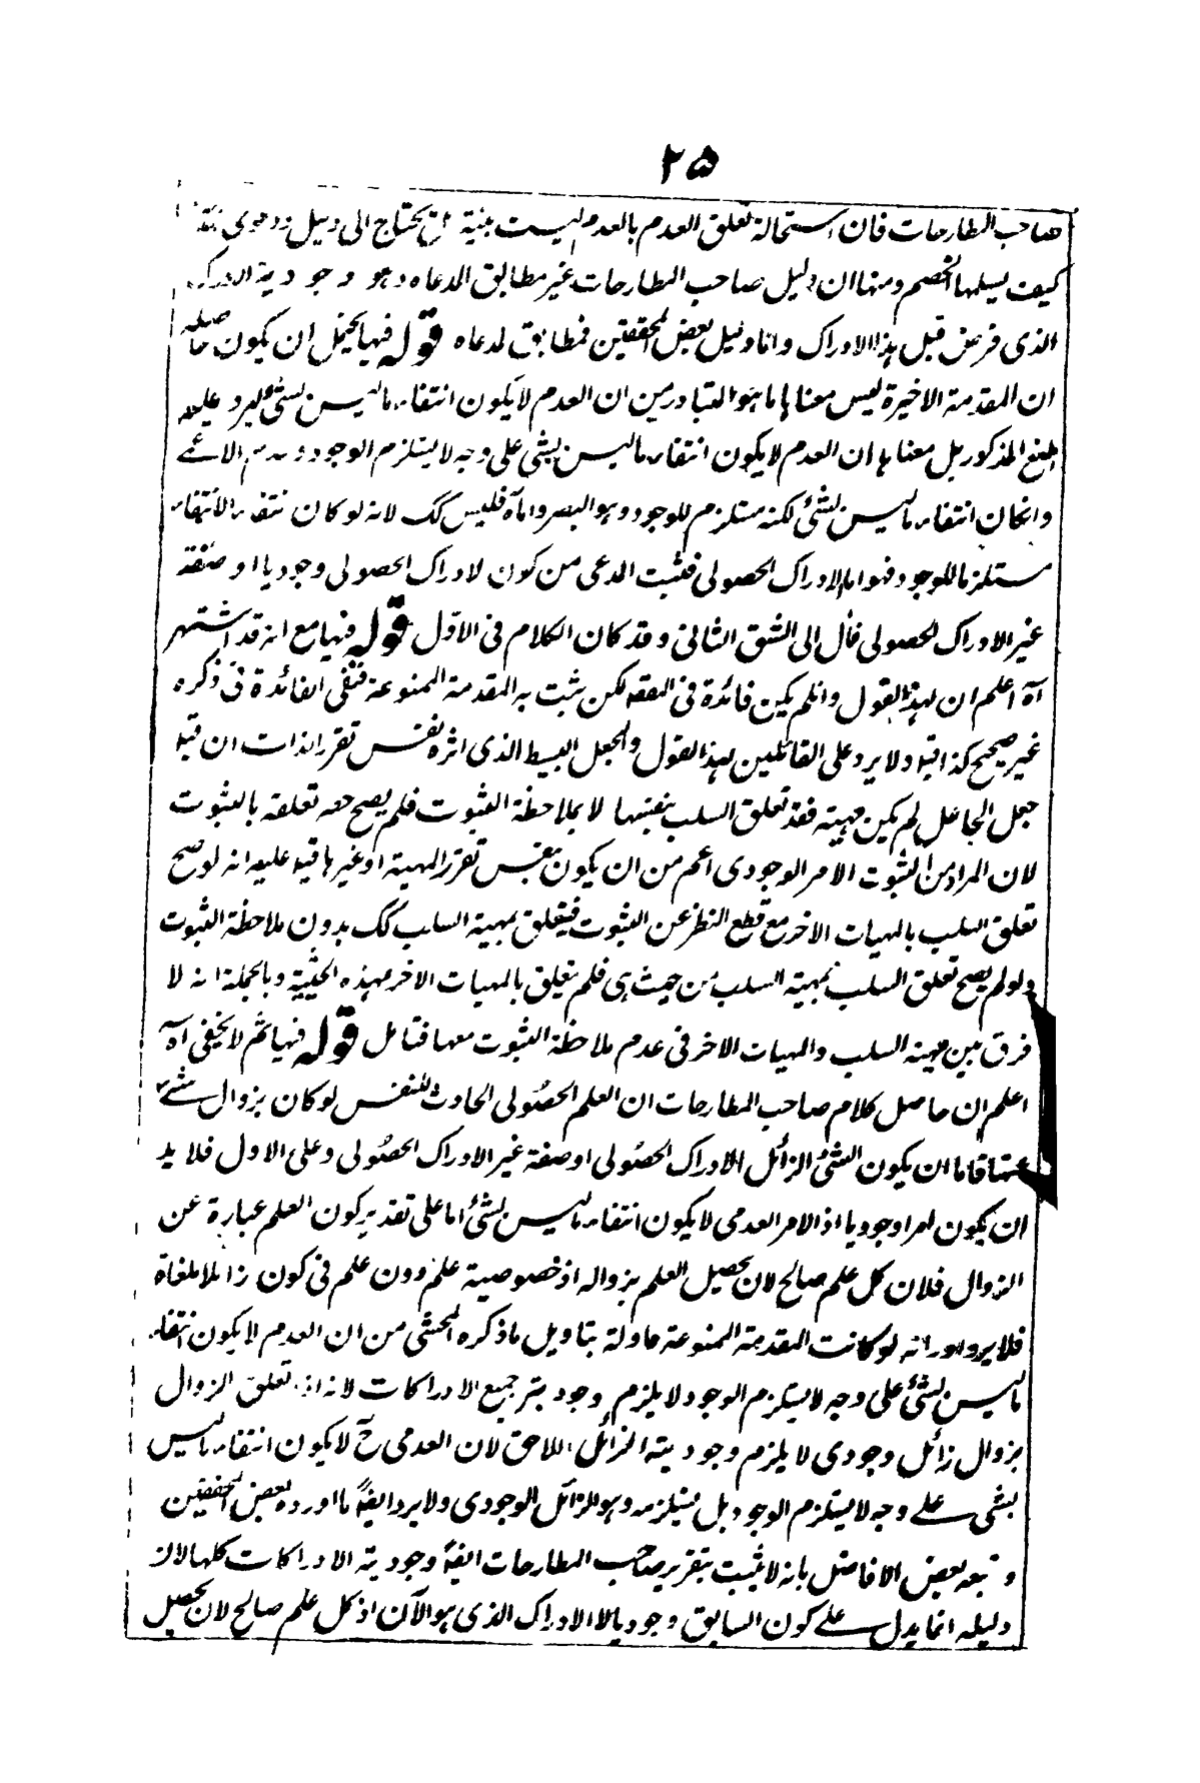 ٢٥
صاحب المطارحات فان استحالة تعلق العدم بالعدم ليست بينة بل يحتاج الى دليل ودعوى
كيف يسلمها الخصم ومنها ان دليل صاحب المطارحات غير مطابق لمدعاه وهو وجودية الادراك
الذى فرض قبل هذا الادراك واما دليل بعض المحققين فمطابق لمدعاه قوله فيها يخيل ان يكون حاصله
ان المقدمة الاخيرة ليس معناها ما هو المتبادر من ان العدم لا يكون انتفاء ما ليس بشئ ليرد عليه
المنع المذكور بل معناها ان العدم لا يكون انتفاء ما ليس بشئ على وجه لا يستلزم الوجود وعدم الاعمى
وانكان انتفاء ما ليس بشئ لكنه مستلزم للوجود وهو البصر واما آه فليس كك لانه لو كان انتفاء الانتفاء
مستلزما للوجود فهو اما الادراك الحصولى فثبت المدعى من كون الادراك الحصولى وجوديا او صفة
غير الادراك الحصولى فأل الى الشق الثانى وقد كان الكلام فى الاول قوله فيها مع انه قد اشتهر
آه اعلم ان لهذا القول وانلم يكن فائدة فى النقه لكن يثبت به المقدمة الممنوعة فنفى الفائدة فى ذكره
غير صحيح كذا قيل ولا يرد على القائلين بهذا القول والجعل البسيط الذى اثره نفس تقرر الذات ان قبل
جعل الجاعل لم يكن مهية فقد تعلق السلب بنفسها لا بملاحظة الثبوت فلم يصح حصر تعلقه بالثبوت
لان المراد من الثبوت الامر الوجودى اعم من ان يكون نفس تقرر المهية او غيرها قيل عليه انه لو صح
تعلق السلب بالمهيات الاخر مع قطع النظر عن الثبوت فيتعلق بمهية السلب كك بدون ملاحظة الثبوت
ولو لم يصح تعلق السلب بمهية السلب من حيث هى فلم يتعلق بالمهيات الاخر بهذه الحيثية وبالجملة انه لا
فرق بين مهية السلب والمهيات الاخر فى عدم ملاحظة الثبوت معها فتامل قوله فيها ثم لا يخفى آه
اعلم ان حاصل كلام صاحب المطارحات ان العلم الحصولى الحادث للنفس لو كان بزوال شئ
عنها فاما ان يكون الشئ الزائل الادراك الحصولى او صفة غير الادراك الحصولى وعلى الاول فلا بد
ان يكون امرا وجوديا اذ الامر العدمى لا يكون انتفاء ما ليس بشئ اما على تقدير كون العلم عبارة عن
الزوال فلان كل علم صالح لان يحصل العلم بزواله اذ خصوصية علم دون علم فى كون زائلا ملغاة
فلا يرد انه لو كانت المقدمة الممنوعة ماولة بتاويل ما ذكره المحشى من ان العدم لا يكون انتفاء
ما ليس بشئ على وجه لا يستلزم الوجود لا يلزم وجودية جميع الادراكات لانه اذا تعلق الزوال
بزوال زائل وجودى لا يلزم وجودية الزائل اللاحق لان العدمى ح لا يكون انتفاء ما ليس
بشى على وجه لا يستلزم الوجود بل يستلزمه وهو الزائل الوجودى ولا يرد ايضا ما اورده بعض المحققين
وتبعه بعض الافاضل بانه لا يثبت بتقرير صاحب المطارحات ايضا وجودية الادراكات كلها لان
دليله انما يدل على كون السابق وجوديا لا الادراك الذى هو الآن اذ كل علم صالح لان يحصل